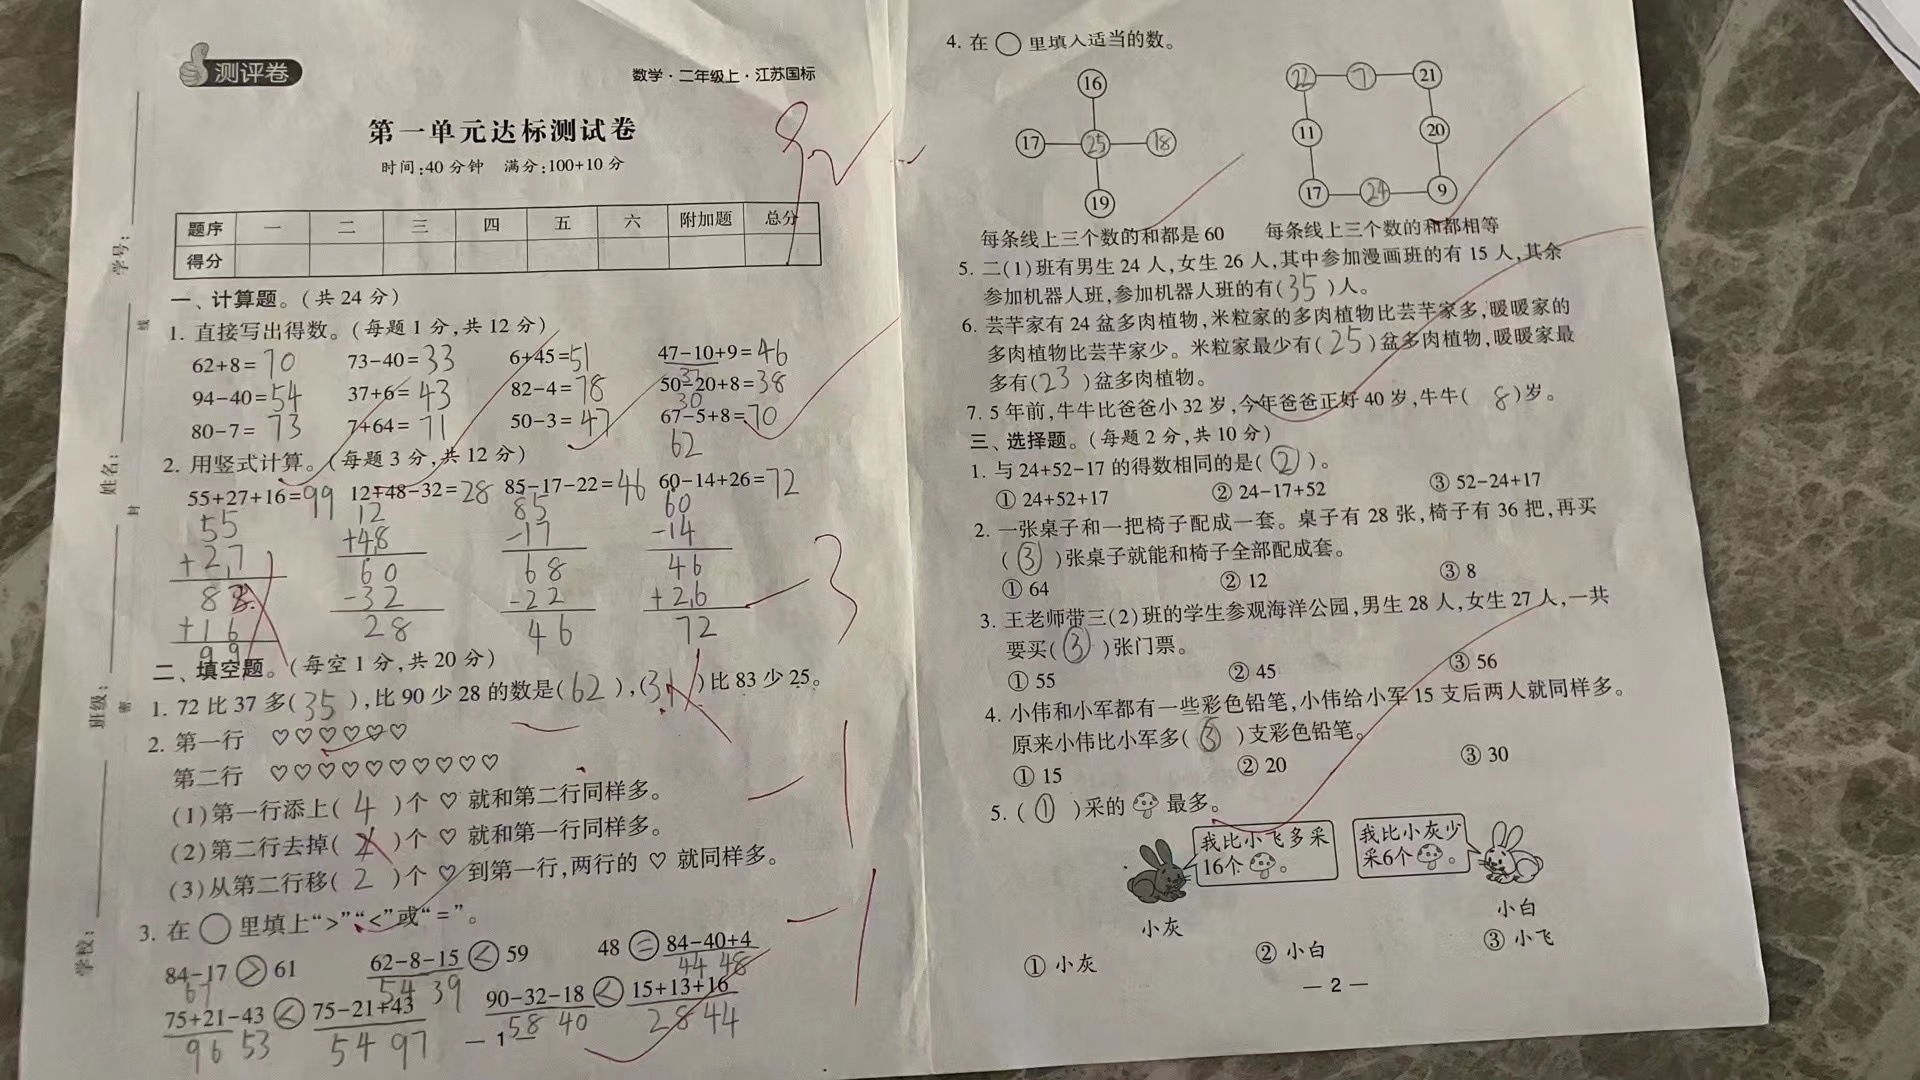 测评卷
数学·二年级上·江苏国标
第一单元达标测试卷
时间:40分钟 满分:100+10分
题序 一 二 三 四 五 六 附加题 总分
得分
学号:
姓名:
班级:
学校:
线
封
密
一、计算题。(共24分)
1. 直接写出得数。(每题1分,共12分)
62+8=70 73-40=33 6+45=51 47-10+9=46
37
94-40=54 37+6=43 82-4=78 50-20+8=38
30
80-7=73 7+64=71 50-3=47 67-5+8=70
62
2. 用竖式计算。(每题3分,共12分)
55+27+16=99 12+48-32=28 85-17-22=46 60-14+26=72
55 12 85 60
+27 +48 -17 -14
83 60 68 46
+16 -32 -22 +26
99 28 46 72
-3
二、填空题。(每空1分,共20分)
1. 72比37多(35),比90少28的数是(62),(31)比83少25。
2. 第一行 ♡♡♡♡♡♡
第二行 ♡♡♡♡♡♡♡♡♡♡
(1)第一行添上(4)个♡就和第二行同样多。
-1
(2)第二行去掉( )个♡就和第一行同样多。
(3)从第二行移(2)个♡到第一行,两行的♡就同样多。
-1
3. 在○里填上“>”“<”或“=”。
84-17>61 62-8-15<59 48=84-40+4
67 54 39 44 48
75+21-43<75-21+43 90-32-18<15+13+16
96 53 54 97 58 40 28 44
— 1 —
4. 在○里填入适当的数。
16
17 25 18
19
22 7 21
11 20
17 24 9
每条线上三个数的和都是60 每条线上三个数的和都相等
5. 二(1)班有男生24人,女生26人,其中参加漫画班的有15人,其余
参加机器人班,参加机器人班的有(35)人。
6. 芸芊家有24盆多肉植物,米粒家的多肉植物比芸芊家多,暖暖家的
多肉植物比芸芊家少。米粒家最少有(25)盆多肉植物,暖暖家最
多有(23)盆多肉植物。
7. 5年前,牛牛比爸爸小32岁,今年爸爸正好40岁,牛牛(8)岁。
三、选择题。(每题2分,共10分)
1. 与24+52-17的得数相同的是(②)。
① 24+52+17 ② 24-17+52 ③ 52-24+17
2. 一张桌子和一把椅子配成一套。桌子有28张,椅子有36把,再买
(③)张桌子就能和椅子全部配成套。
① 64 ② 12 ③ 8
3. 王老师带三(2)班的学生参观海洋公园,男生28人,女生27人,一共
要买(③)张门票。
① 55 ② 45 ③ 56
4. 小伟和小军都有一些彩色铅笔,小伟给小军15支后两人就同样多。
原来小伟比小军多(③)支彩色铅笔。
① 15 ② 20 ③ 30
5. (①)采的最多。
我比小飞多采
16个。
我比小灰少
采6个。
小灰
小白
① 小灰 ② 小白 ③ 小飞
— 2 —